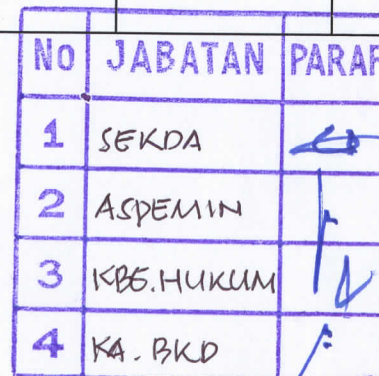 No JABATAN PARAF
1 SEKDA
2 ASPEMIN
3 KBG.HUKUM
4 KA. BKD